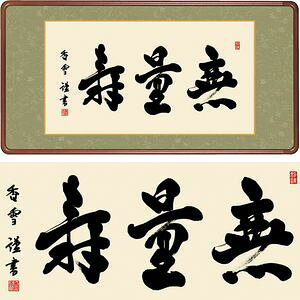 無量壽
香雪謹書
無量壽
香雪謹書